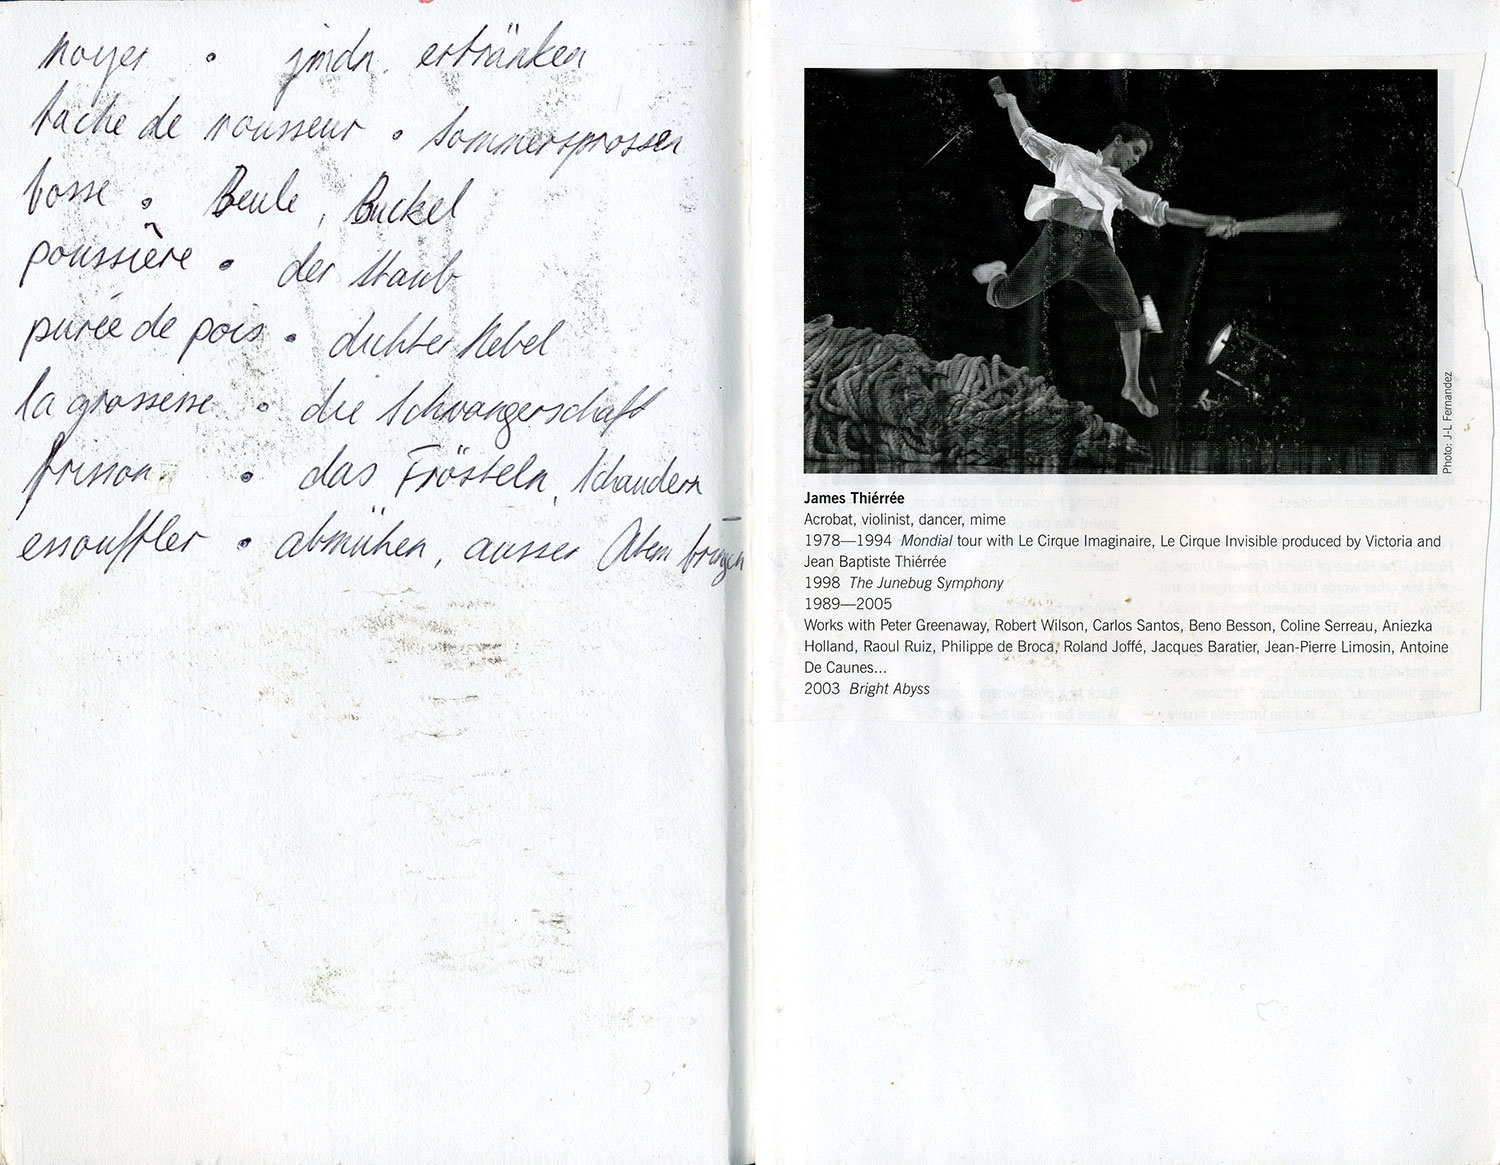 noyer • jmdn. ertränken
tache de rousseur • Sommersprossen
bosse • Beule, Buckel
poussière • der Staub
purée de pois • dichter Nebel
la grossesse • die Schwangerschaft
frisson • das Frösteln, Schaudern
essouffler • abmühen, ausser Atem bringen
Photo: J-L Fernandez
James Thiérrée
Acrobat, violinist, dancer, mime
1978—1994 Mondial tour with Le Cirque Imaginaire, Le Cirque Invisible produced by Victoria and
Jean Baptiste Thiérrée
1998 The Junebug Symphony
1989—2005
Works with Peter Greenaway, Robert Wilson, Carlos Santos, Beno Besson, Coline Serreau, Aniezka
Holland, Raoul Ruiz, Philippe de Broca, Roland Joffé, Jacques Baratier, Jean-Pierre Limosin, Antoine
De Caunes...
2003 Bright Abyss